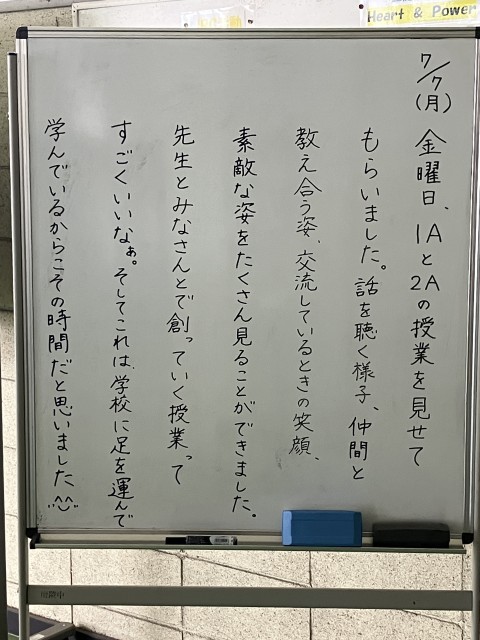 Heart & Power
7/7(月)
金曜日、1Aと2Aの授業を見せて
もらいました。話を聴く様子、仲間と
教え合う姿、交流しているときの笑顔、
素敵な姿をたくさん見ることができました。
先生とみなさんとで創っていく授業って
すごくいいなぁ。そしてこれは、学校に足を運んで
学んでいるからこその時間だと思いました^^